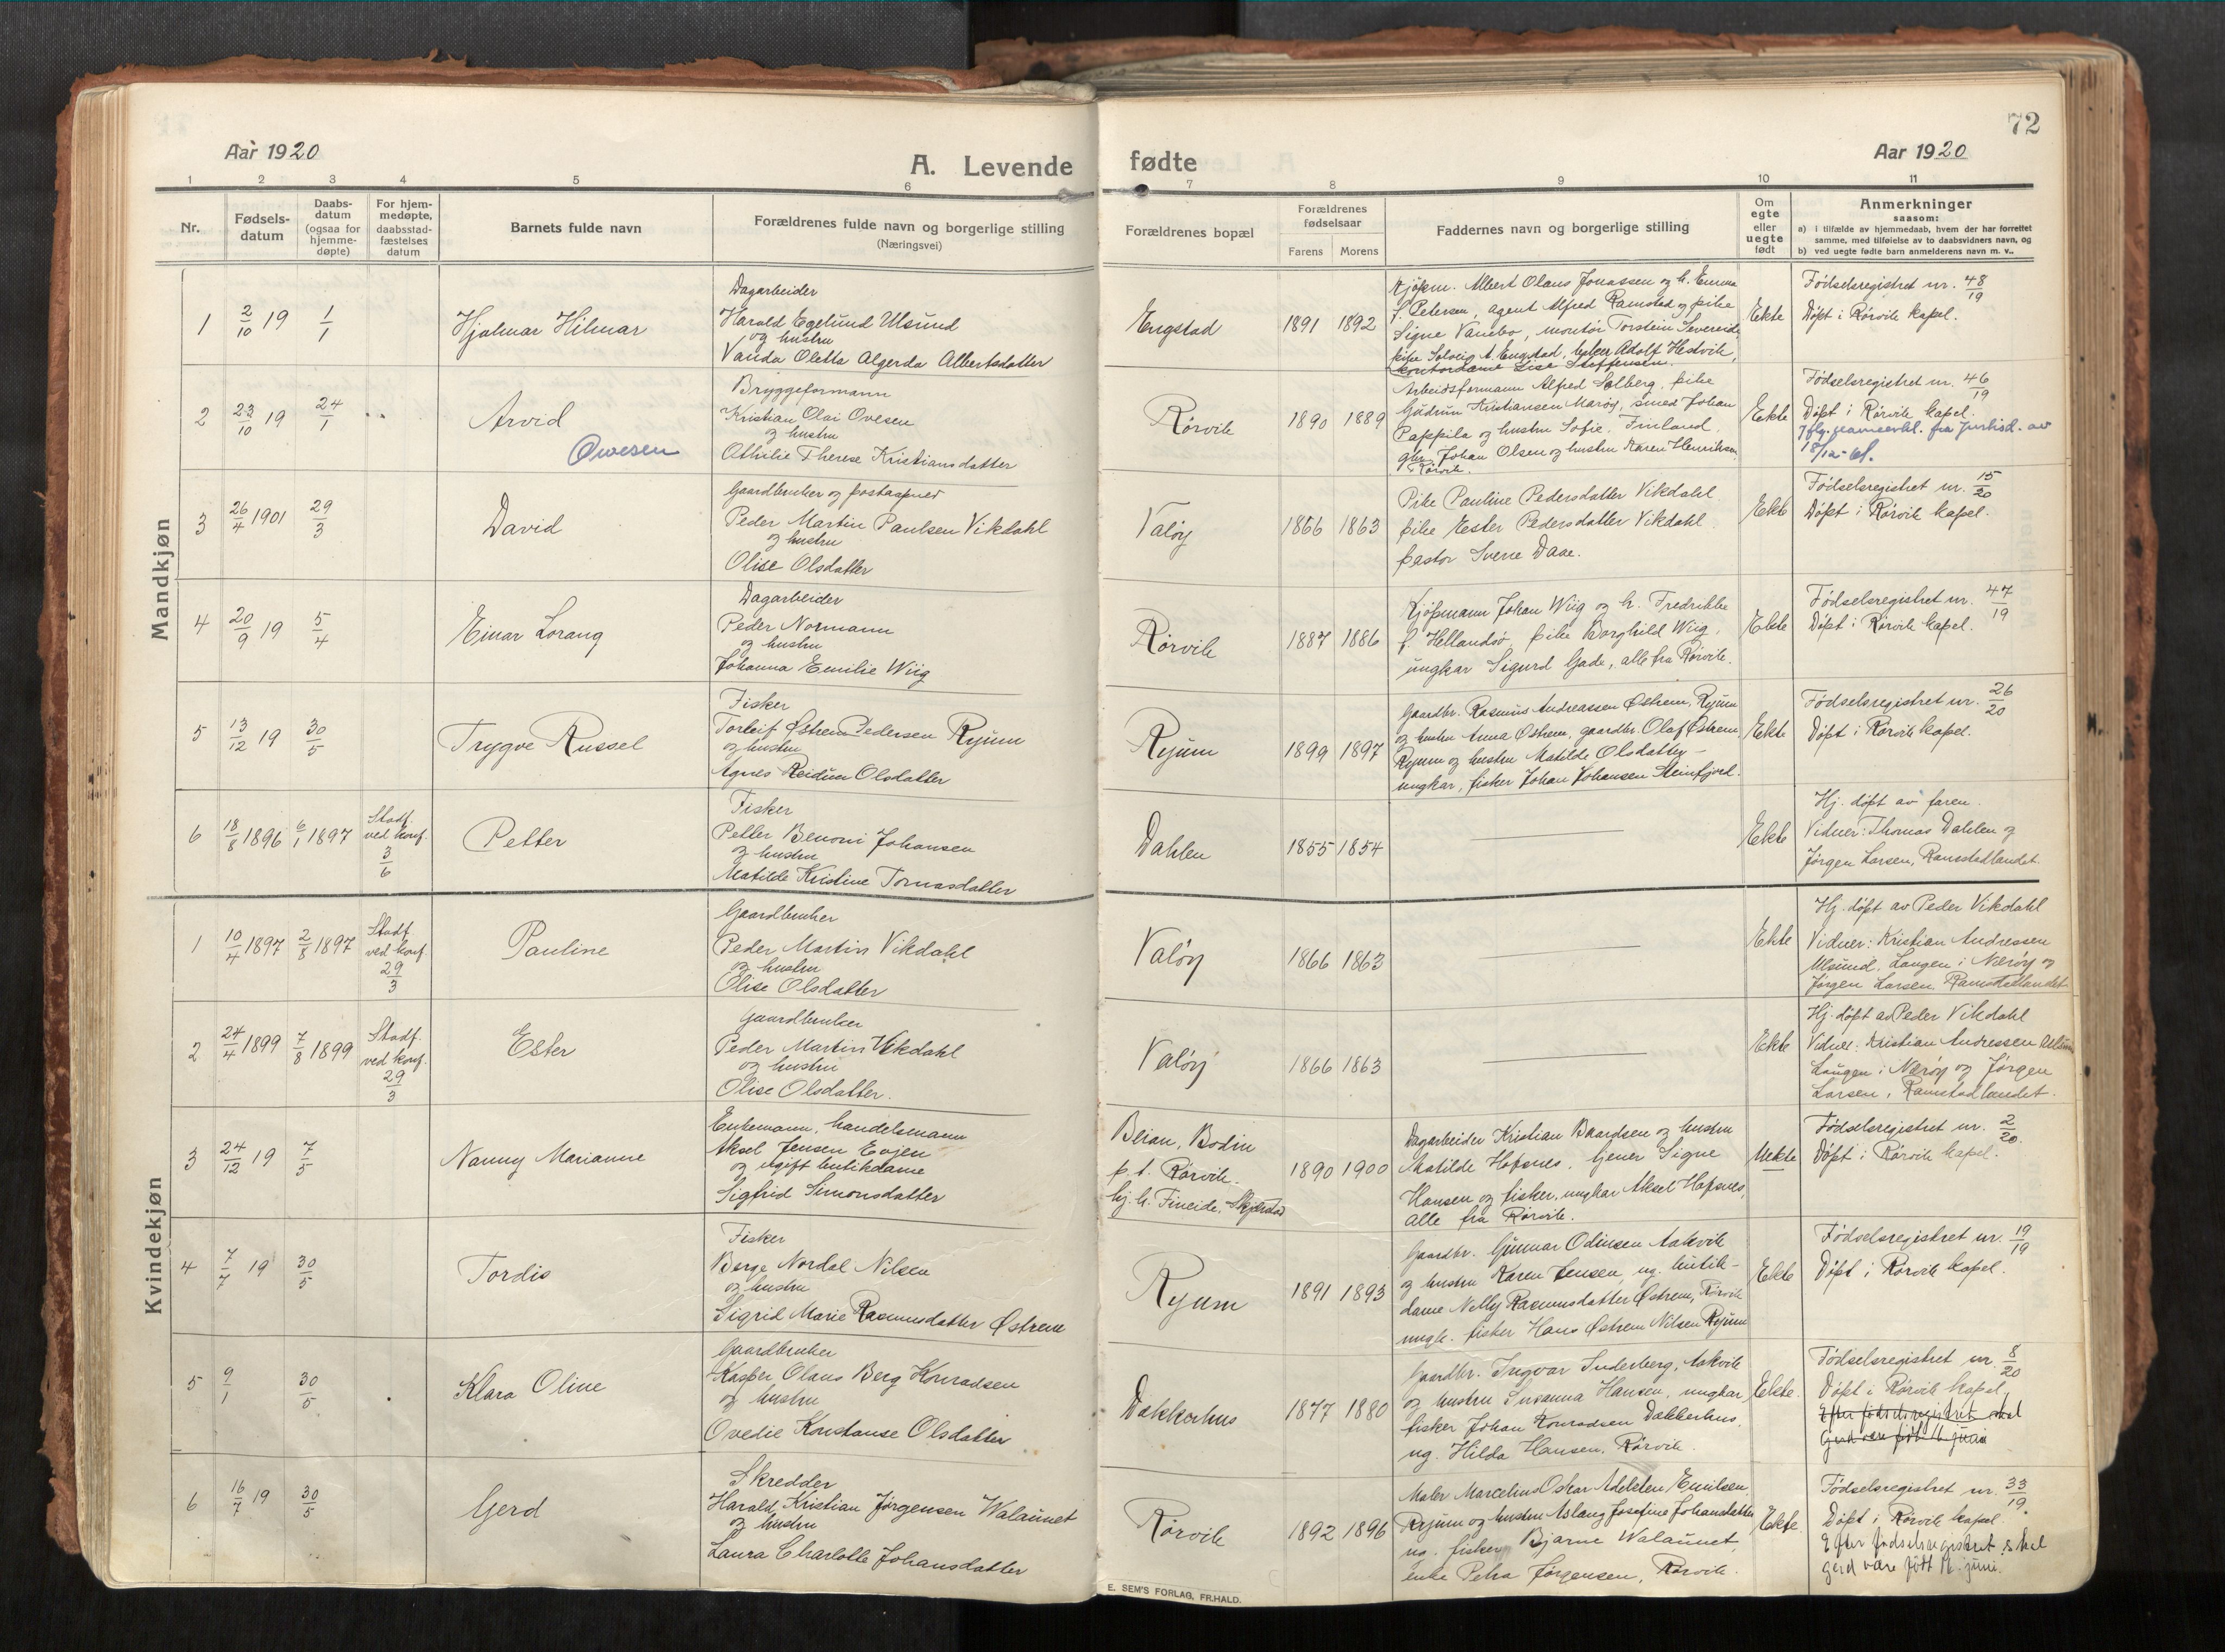 72
Aar 1920
A. Levende
fødte
Aar 1920
1 2 3 4 5 6 7 8 9 10 11
Nr.
Fødsels-
datum
Daabs-
datum
(ogsaa for
hjemme-
døpte)
For hjem-
medøpte,
daabsstad-
fæstelses
datum
Barnets fulde navn
Forældrenes fulde navn og borgerlige stilling
(Næringsvei)
Forældrenes bopæl
Forældrenes
fødselsaar
Farens Morens
Faddernes navn og borgerlige stilling
Om
egte
eller
uegte
født
Anmerkninger
saasom:
a) i tilfælde av hjemmedaab, hvem der har forrettet
samme, med tilføielse av to daabsvidners navn, og
b) ved uegte fødte barn anmelderens navn m. v..
Mandkjøn
1 2/10 19 1/1
Hjalmar Hilmar
Dagarbeider
Harald Egelund Ulsund
og hustru
Vanda Oletta Algerda Albertsdatter
Engstad
1891 1892
Kjøpm. Albert Olaus Jonassen og h. Emma
f. Petersen, agent Alfred Ramstad og pike
Signe Vanebo, montør Torstein Severeide,
pike Solveig A. Engstad, Adolf Hestvik,
kontordame Lise Steffensen.
Ekte
Fødselsregistret nr. 48/19
Døpt i Rørvik kapel.
2 23/10 19 24/1
Arvid
Owesen
Bryggeformann
Kristian Olai Ovesen
og hustru
Othilie Therese Kristiansdatter
Rørvik
1890 1889
Arbeidsformann Alfred Solberg, pike
Gudrun Kristiansen Marøy, smed Johan
Pappila og hustru Sofie. Finland.
gbr. Johan Olsen og hustru Karen Henriksen
Rørvik.
Ekte
Fødselsregistret nr. 46/19
Døpt i Rørvik kapel.
Jflg. fra Justisd. av
18/12-61.
3 26/4 1901 29/3
David
Gaardbruker og postaapner
Peder Martin Paulsen Vikdahl
og hustru
Olise Olsdatter
Valøy
1866 1863
Pike Pauline Pedersdatter Vikdahl
pike Ester Pedersdatter Vikdahl
pastor Sverre Daae.
Ekte
Fødselsregistret nr. 15/20
Døpt i Rørvik kapel.
4 20/9 19 5/4
Einar Lorang
Dagarbeider
Peder Normann
og hustru
Johanna Emilie Wiig
Rørvik
1887 1886
Kjøpmann Johan Wiig og h. Fredrikke
f. Hellandsø pike Borghild Wiig,
ungkar Sigurd Gade, alle fra Rørvik.
Ekte
Fødselsregistret nr. 47/19
Døpt i Rørvik kapel.
5 13/12 19 30/5
Trygve Russel
Fisker
Torleif Østrem Pedersen Ryum
og hustru
Agnes Reidun Olsdatter
Ryum
1899 1897
Gaardbr. Rasmus Andreassen Østrem, Ryum
og hustru Anna Østrem, gaardbr. Olaf Østrem
Ryum og hustru Matilde Olsdatter –
ungkar, fisker Johan Johansen Steinfjord.
Ekte
Fødselsregistret nr. 26/20
Døpt i Rørvik kapel.
6 18/8 1896 6/1 1897
Stadf.
ved konf.
3/6
Petter
Fisker
Petter Benoni Johansen
og hustru
Matilde Kristine Tomasdatter
Dahlen
1855 1854
Ekte
Hj. døpt av faren.
Vidner: Thomas Dahlen og
Jørgen Larsen, Ramstadlandet.
Kvindekjøn
1 10/4 1897 2/8 1897
Stadf.
ved konf
29/3
Pauline
Gaardbruker
Peder Martin Vikdahl
og hustru
Olise Olsdatter
Valøy
1866 1863
Ekte
Hj. døpt av Peder Vikdahl
Vidner: Kristian Andressen
Ulsund, Laugen i Nærøy og
Jørgen Larsen, Ramstadlandet
2 24/4 1899 7/8 1899
Stadf.
ved konf.
29/3
Ester
Gaardbruker
Peder Martin Vikdahl
og hustru
Olise Olsdatter.
Valøy
1866 1863
Ekte
Hj. døpt av Peder Vikdahl
Vidner: Kristian Andressen Ulsund
Laugen i Nærøy og Jørgen
Larsen, Ramstadlandet.
3 24/12 19 7/5
Nanny Marianne
Enkemann, handelsmann
Aksel Jensen Evjen
og ugift butikdame
Sigfrid Simonsdatter
Beian, Bodin
p.t. Rørvik.
hj. h. Fineide, Skjerstad
1890 1900
Dagarbeider Kristian Baardsen og hustru
Matilde Hofsnes, tjener Signe
Hansen og fisker, ungkar Aksel Hofsnes,
alle fra Rørvik.
Uekte
Fødselsregistret nr. 2/20.
Døpt i Rørvik kapel.
4 7/7 19 30/5
Tordis
Fisker
Berge Nordal Nilsen
og hustru
Sigrid Marie Rasmusdatter Østrem
Ryum
1891 1893
Gaardbr. Gunnar Odinsen Aakvik
og hustru Karen Jensen, ug. butik-
dame Nelly Rasmusdatter Østrem, Rørvik
ungk. fisker Hans Østrem Nilsen Ryum
Ekte
Fødselsregistret nr. 19/19
Døpt i Rørvik kapel.
5 9/1 30/5
Klara Oline
Gaardbruker
Kasper Olaus Berg Konradsen
og hustru
Ovedie Konstanse Olsdatter
Dækkerhus
1877 1880
Gaardbr. Ingvar Suderberg, Aakvik
og hustru Susanna Hansen, ungkar,
fisker Johan Konradsen Dækkerhus,
ug. Hilda Hansen, Rørvik.
Ekte.
Fødselsregistret nr. 8/20
Døpt i Rørvik kapel,
Efter fødselsregistret skal
Gerd være født 16 juni
6 16/7 19 30/5
Gerd
Skredder
Harald Kristian Jørgensen Walaunet
og hustru
Laura Charlotte Johansdatter
Rørvik
1892 1896
Maler Marcelius Oskar Emilsen,
Ryum og hustru Aslaug Josefine Johansdatter
ug. fisker Bjarne Walaunet,
enke Petra Jørgensen, Rørvik.
Ekte.
Fødselsregistret nr. 33/19.
Døpt i Rørvik kapel.
Efter fødselsregistret skal
Gerd være født 16. juni.
E. SEM'S FORLAG, FR.HALD.